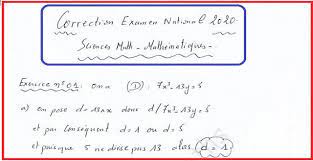 Correction Examen National 2020
Sciences Math - Mathématiques -
Exercice n°01: on a (D): 7x³-13y=5
a) on pose d=13∧x donc d/7x³-13y=5
et par conséquent d=1 ou d=5
et puisque 5 ne divise pas 13 alors d=1